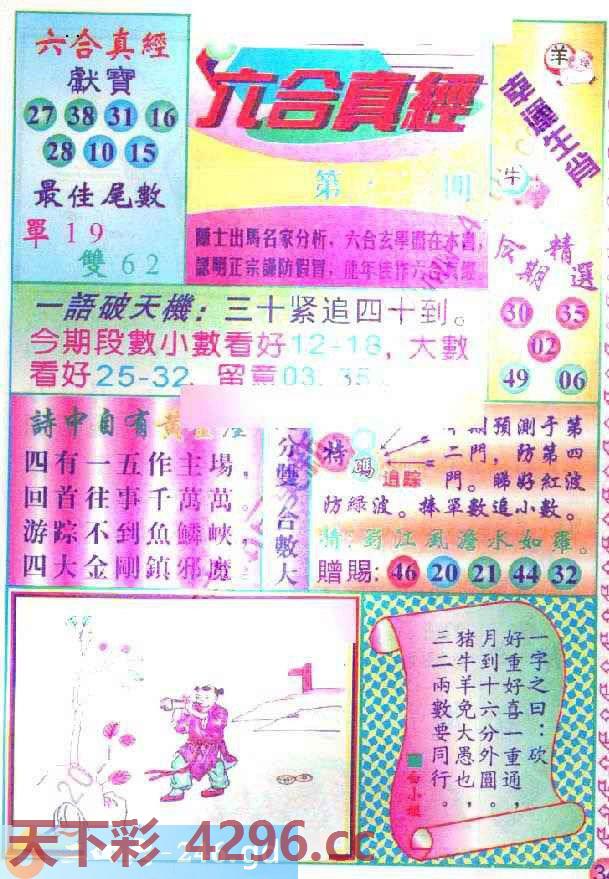 六合真經
獻寶
27 38 31 16
28 10 15
最佳尾數
單 19
雙 62
六合真經
第 期
隱士出馬名家分析，六合玄學盡在本書，
認明正宗謹防假冒，龍年佳作六合真經
羊
幸運生肖
牛
今期精選
30 35
02
49 06
一語破天機：三十紧追四十到。
今期段數小數看好12-18，大數
看好25-32，留意03.35
詩中自有黃
四有一五作主場，
回首往事千萬萬。
游踪不到魚鱗峽，
四大金剛鎮邪魔
分雙合數大
特碼
追踪
期預測于第
二門，防第四
門。睇好紅波
防綠波。捧單數追小數。
特：蜀江風澹水如羅。
贈賜：46 20 21 44 32
一字之曰：砍
好重好喜一重通，
月到十六分外圓。
猪牛羊兔大愚也，
三二兩數要同行。
白小姐
天下彩 4296.cc
3